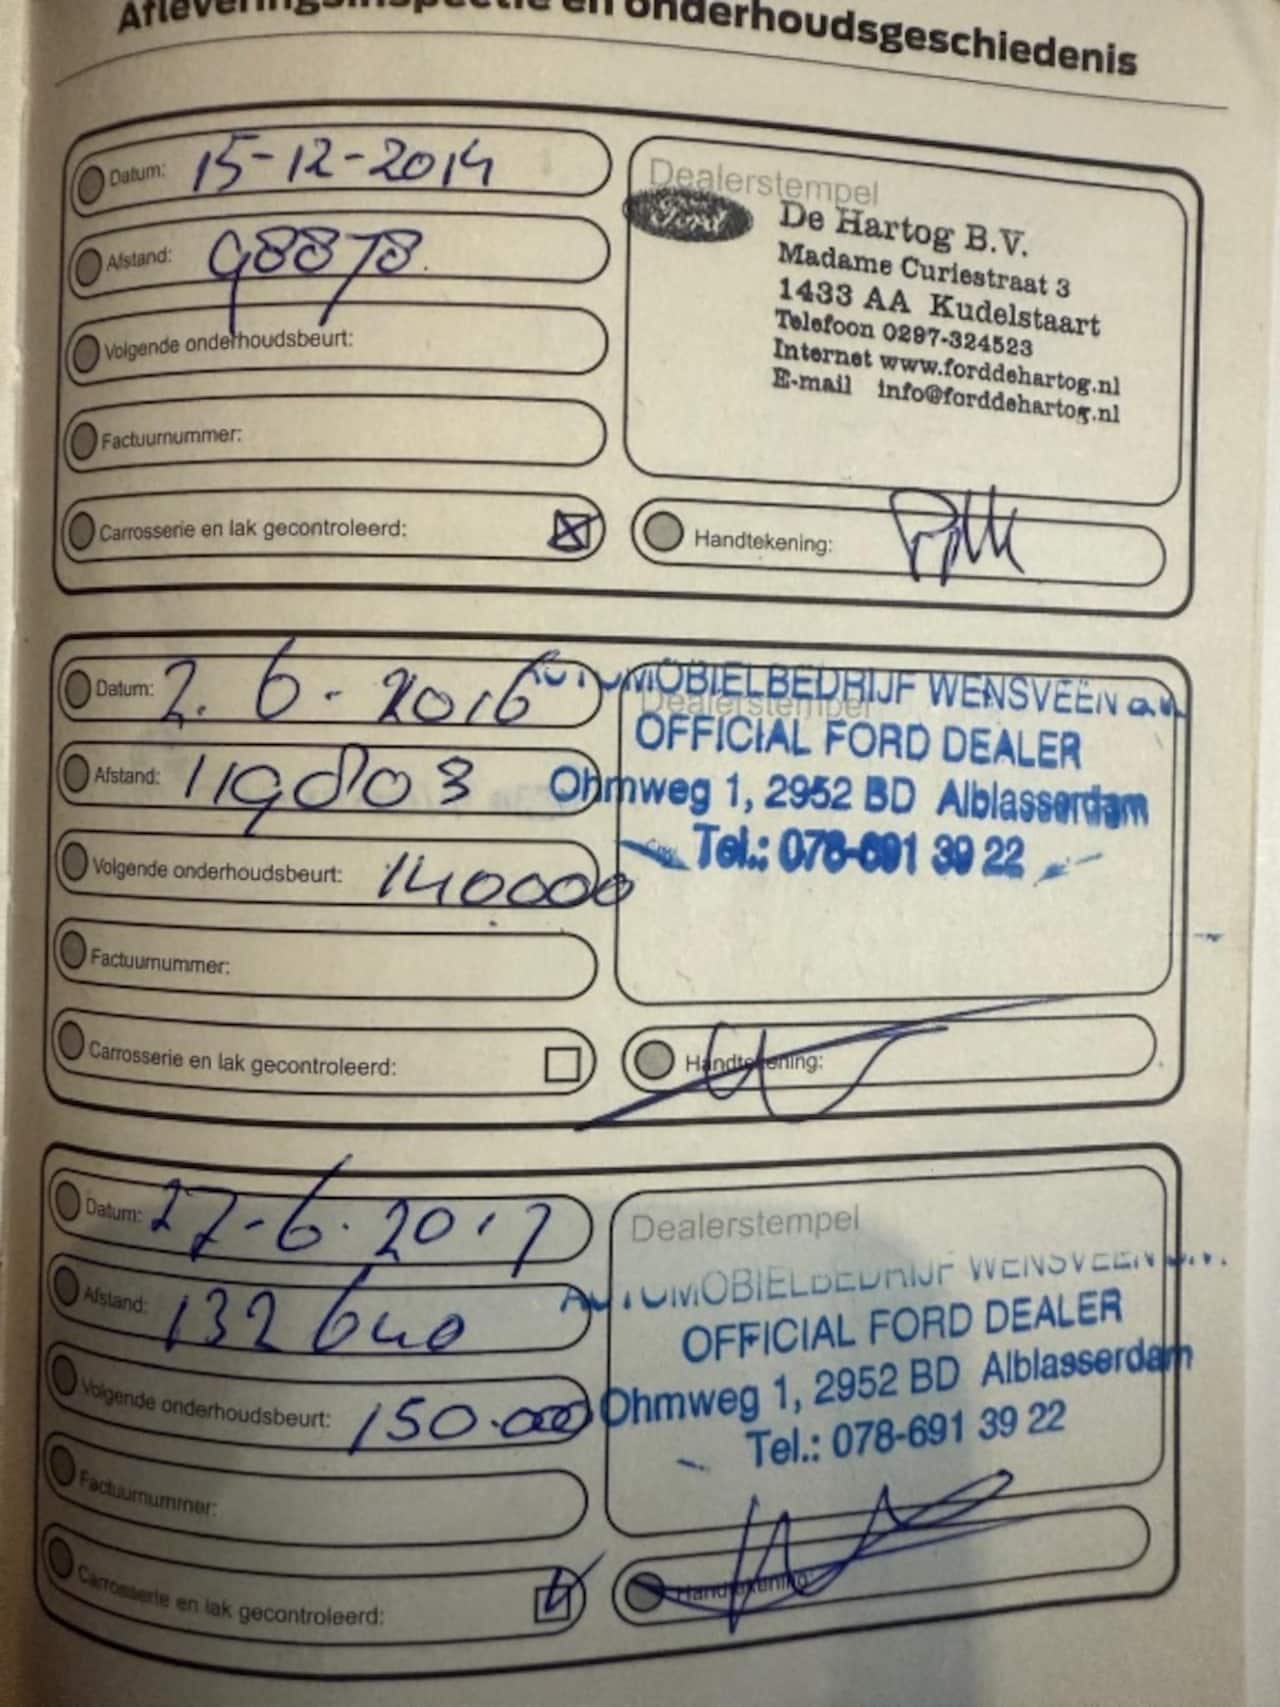 Afleveringsinspectie en onderhoudsgeschiedenis
Datum: 15-12-2014
Afstand: 98878
Volgende onderhoudsbeurt:
Factuurnummer:
Carrosserie en lak gecontroleerd:
Dealerstempel
Ford
De Hartog B.V.
Madame Curiestraat 3
1433 AA Kudelstaart
Telefoon 0297-324523
Internet www.forddehartog.nl
E-mail info@forddehartog.nl
Handtekening:
Datum: 2.6-2016
Afstand: 119803
Volgende onderhoudsbeurt: 140000
Factuurnummer:
Carrosserie en lak gecontroleerd:
Dealerstempel
AUTOMOBIELBEDRIJF WENSVEEN
OFFICIAL FORD DEALER
Ohmweg 1, 2952 BD Alblasserdam
Tel.: 078-691 39 22
Handtekening:
Datum: 27-6.2017
Afstand: 132640
Volgende onderhoudsbeurt: 150.000
Factuurnummer:
Carrosserie en lak gecontroleerd:
Dealerstempel
AUTOMOBIELBEDRIJF WENSVEEN B.V.
OFFICIAL FORD DEALER
Ohmweg 1, 2952 BD Alblasserdam
Tel.: 078-691 39 22
Handtekening: